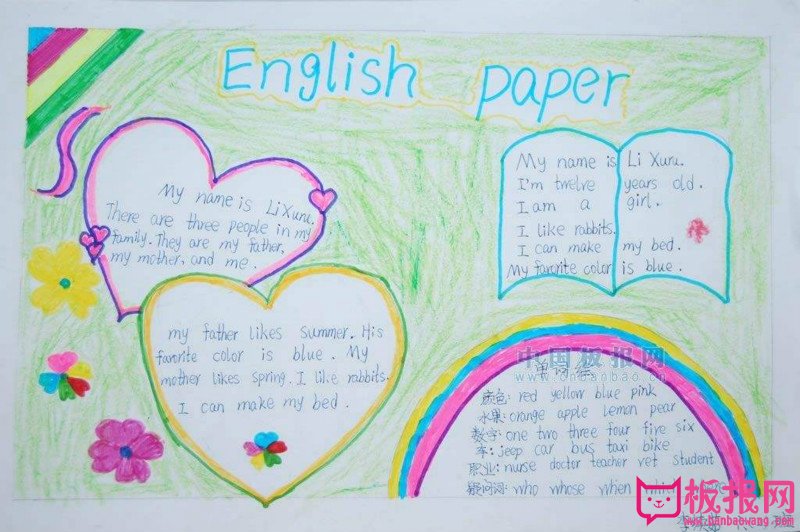 English paper
My name is Li Xuru.
There are three people in my
family. They are my father,
my mother, and me.
my father likes summer. His
favrite color is blue. My
mother likes spring. I like rabbits.
I can make my bed.
My name is Li Xuru.
I'm twelve years old.
I am a girl.
I like rabbits.
I can make my bed.
My favrite color is blue.
中国板报网
www.cnbanbao.cn
颜色: red yellow blue pink
水果: orange apple lemon pear
数字: one two three four five six
车: jeep car bus taxi bike
职业: nurse doctor teacher vet student
疑问词: who whose when
板报网
www.banbaowang.com